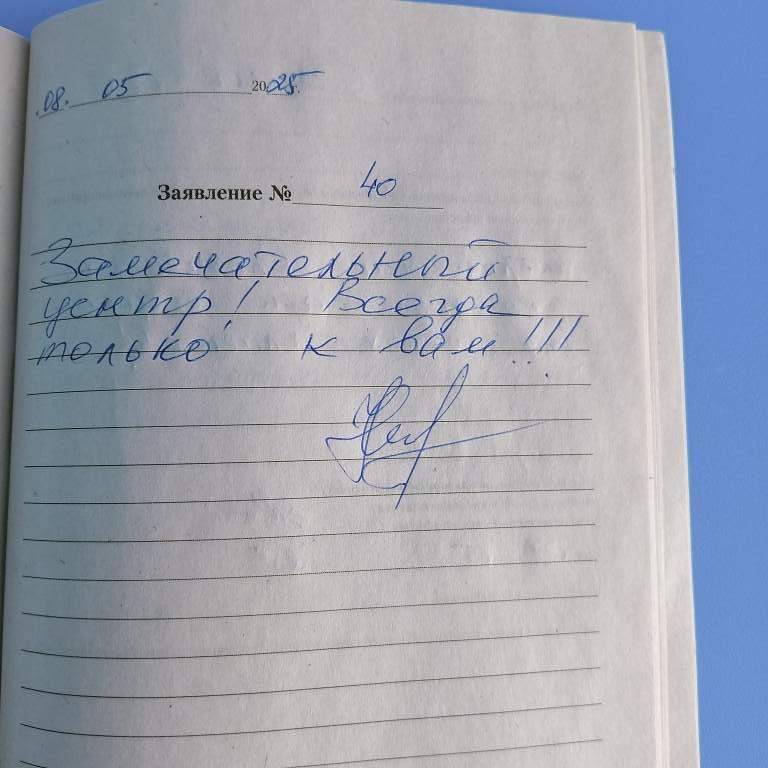 08. 05 2025г.
Заявление № 40
Замечательный
центр! Всегда
только к вам!!!